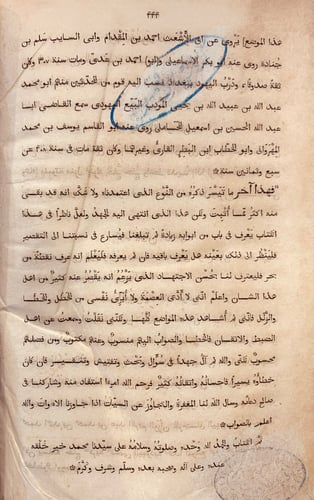 ٤٤٤
هذا الموضع] يروى عن ابى الاشعث احمد بن المقدام وابى السايب سلم بن
جنادة روى عنه ابو بكر الاسماعيلى و[ابو] احمد بن عدى ومات سنة ٣٠٠ وكان
ثقة صدوقاء ودرب اليهود ببغداد نسب اليه قوم من المحدثين منهم ابو محمد
عبد الله بن عبيد الله بن يحيى المودب البيع اليهودى سمع القاضى ابا
عبد الله الحسين بن اسماعيل المحاملى روى عنه ابو القاسم يوسف بن محمد
المهروانى وابو الخطاب ابن البطر القارى وغيرهما وكان ثقة مات فى سنة ٤٠٨ عن
سبع وثمانين سنة*
*فهذا آخر ما تيسر ذكره من النوع الذى اعتمدناه ولا شك انه قد بقى
منه اكثر مما أثبت ولكن هذا الذى انتهى اليه الجهد ولعل ناظرا فى هذا
الكتاب يعرف فى باب من ابوابه زيادة لم تبلغنا فيسارع فى نسبتنا الى التقصير
فلينظر الى ذلك بعينه هل يعرف باقيه فان لم يعرفه فليعلم انه عرف نقطة من
بحر فليعترف لنا بحسن الاجتهاد الذى يزعم انه يقصر عنه كثير من اهل
هذا الشان واعلم اننى لا أدعى العصمة ولا أبرى نفسى من الخطل والخطا
والزلل فاننى لم اشاهد هذه المواضع كلها ولكننى نقلت وسمعت عن اهل
الضبط والاتقان فالخطا والصواب اليهم منسوب وعنهم مكتوب ومن فضلهم
محسوب على والله لم آل جهدا فى سوال وبحث وتفتيش وتنقير فان كان
خطاؤه يسيرا فاحسانه واتقانه كثير فرحم الله امرءا استفاد منه وشاركنا فى
صالح دعائه وسال الله لنا المغفرة والتجاوز عن السيات اذا جاورنا الاموات والله
اعلم بالصواب*
تم الكتاب والحمد لله وحده وصلوته وسلامه على سيدنا محمد خير خلقه
وعلى آله وصحبه بعده وسلم وشرف وكرم*